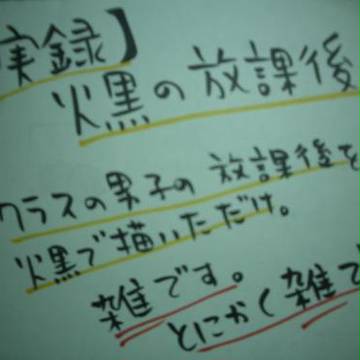 実録】
火黒の放課後
クラスの男子の放課後を
火黒で描いただけ。
雑です。
とにかく雑で